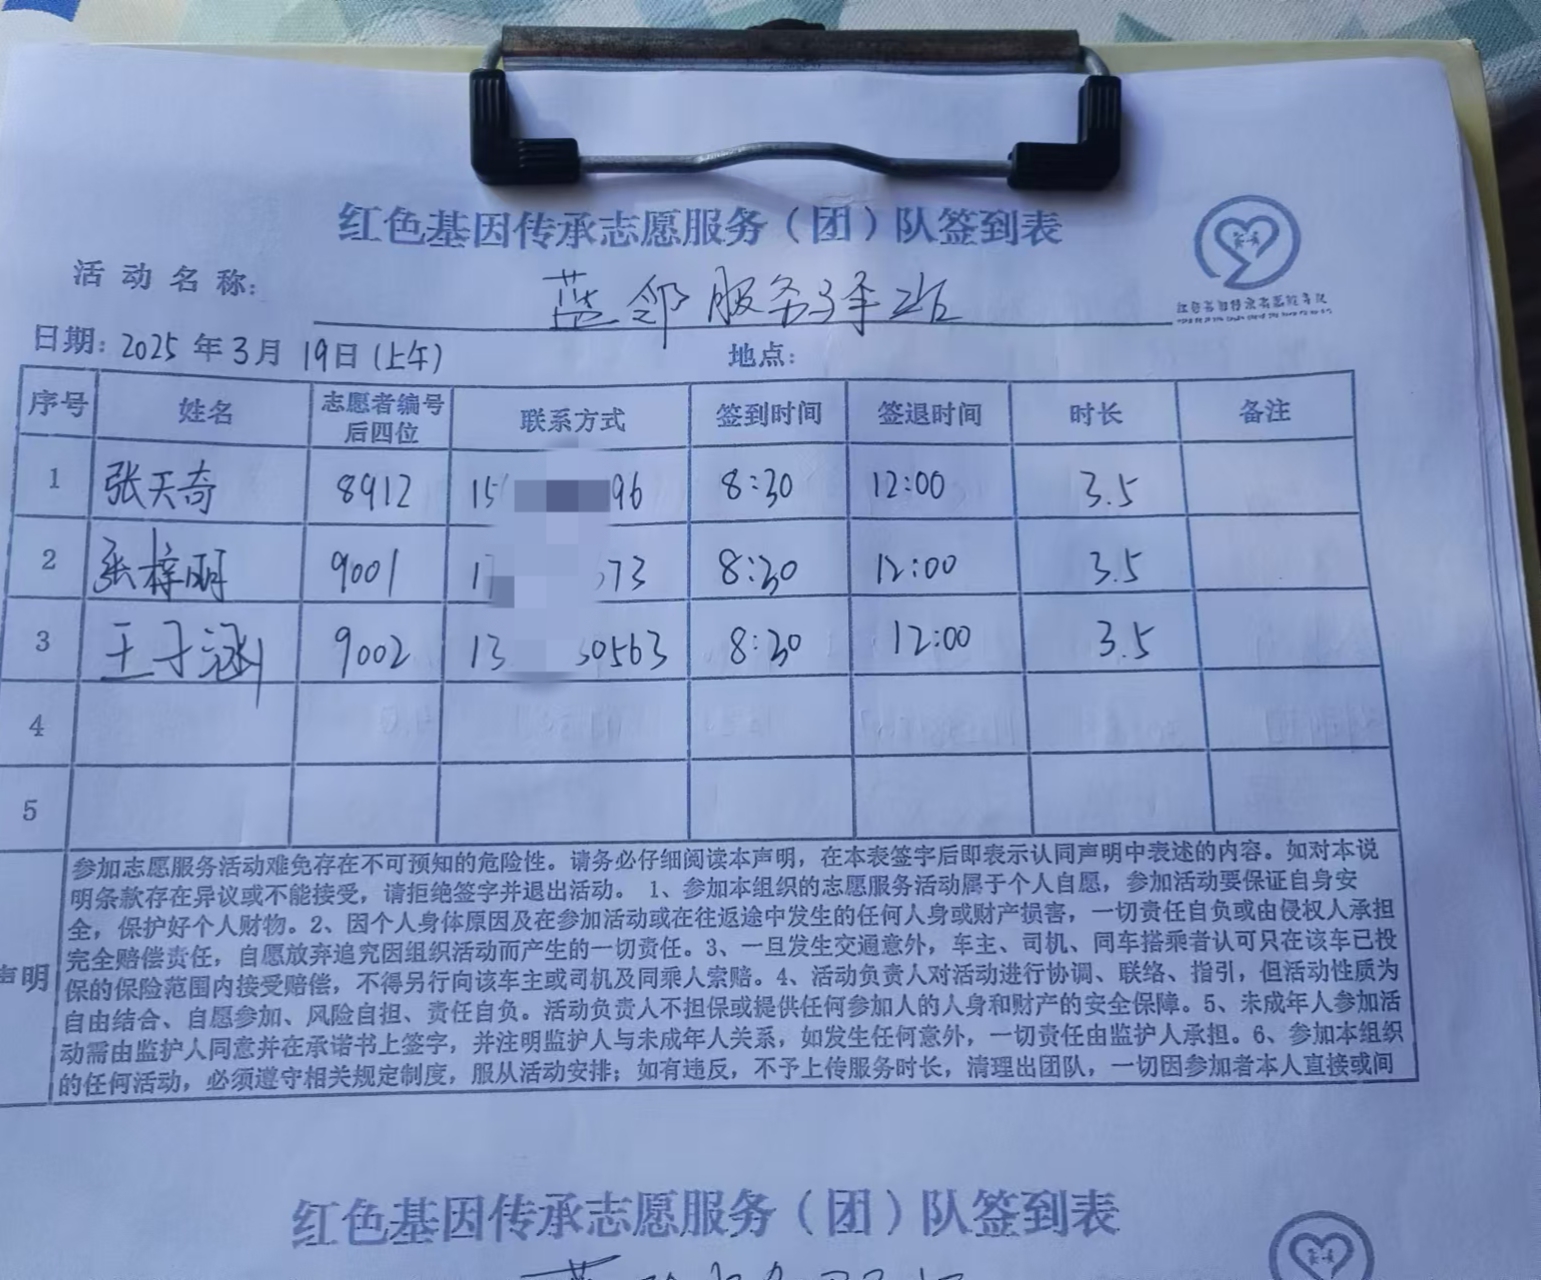 红色基因传承志愿服务（团）队签到表
活动名称: 蓝邻服务驿站
日期: 2025年3月19日(上午) 地点:
序号 姓名 志愿者编号后四位 联系方式 签到时间 签退时间 时长 备注
1 张天奇 8912 15 96 8:30 12:00 3.5
2 张梓明 9001 1 73 8:30 12:00 3.5
3 王子涵 9002 13 30563 8:30 12:00 3.5
4
5
参加志愿服务活动难免存在不可预知的危险性。请务必仔细阅读本声明，在本表签字后即表示认同声明中表述的内容。如对本说
明条款存在异议或不能接受，请拒绝签字并退出活动。1、参加本组织的志愿服务活动属于个人自愿，参加活动要保证自身安
全，保护好个人财物。2、因个人身体原因及在参加活动或在往返途中发生的任何人身或财产损害，一切责任自负或由侵权人承担
完全赔偿责任，自愿放弃追究因组织活动而产生的一切责任。3、一旦发生交通意外，车主、司机、同车搭乘者认可只在该车已投
声明 保的保险范围内接受赔偿，不得另行向该车主或司机及同乘人索赔。4、活动负责人对活动进行协调、联络、指引，但活动性质为
自由结合、自愿参加、风险自担、责任自负。活动负责人不担保或提供任何参加人的人身和财产的安全保障。5、未成年人参加活
动需由监护人同意并在承诺书上签字，并注明监护人与未成年人关系，如发生任何意外，一切责任由监护人承担。6、参加本组织
的任何活动，必须遵守相关规定制度，服从活动安排；如有违反，不予上传服务时长，清理出团队，一切因参加者本人直接或间
红色基因传承志愿服务（团）队签到表